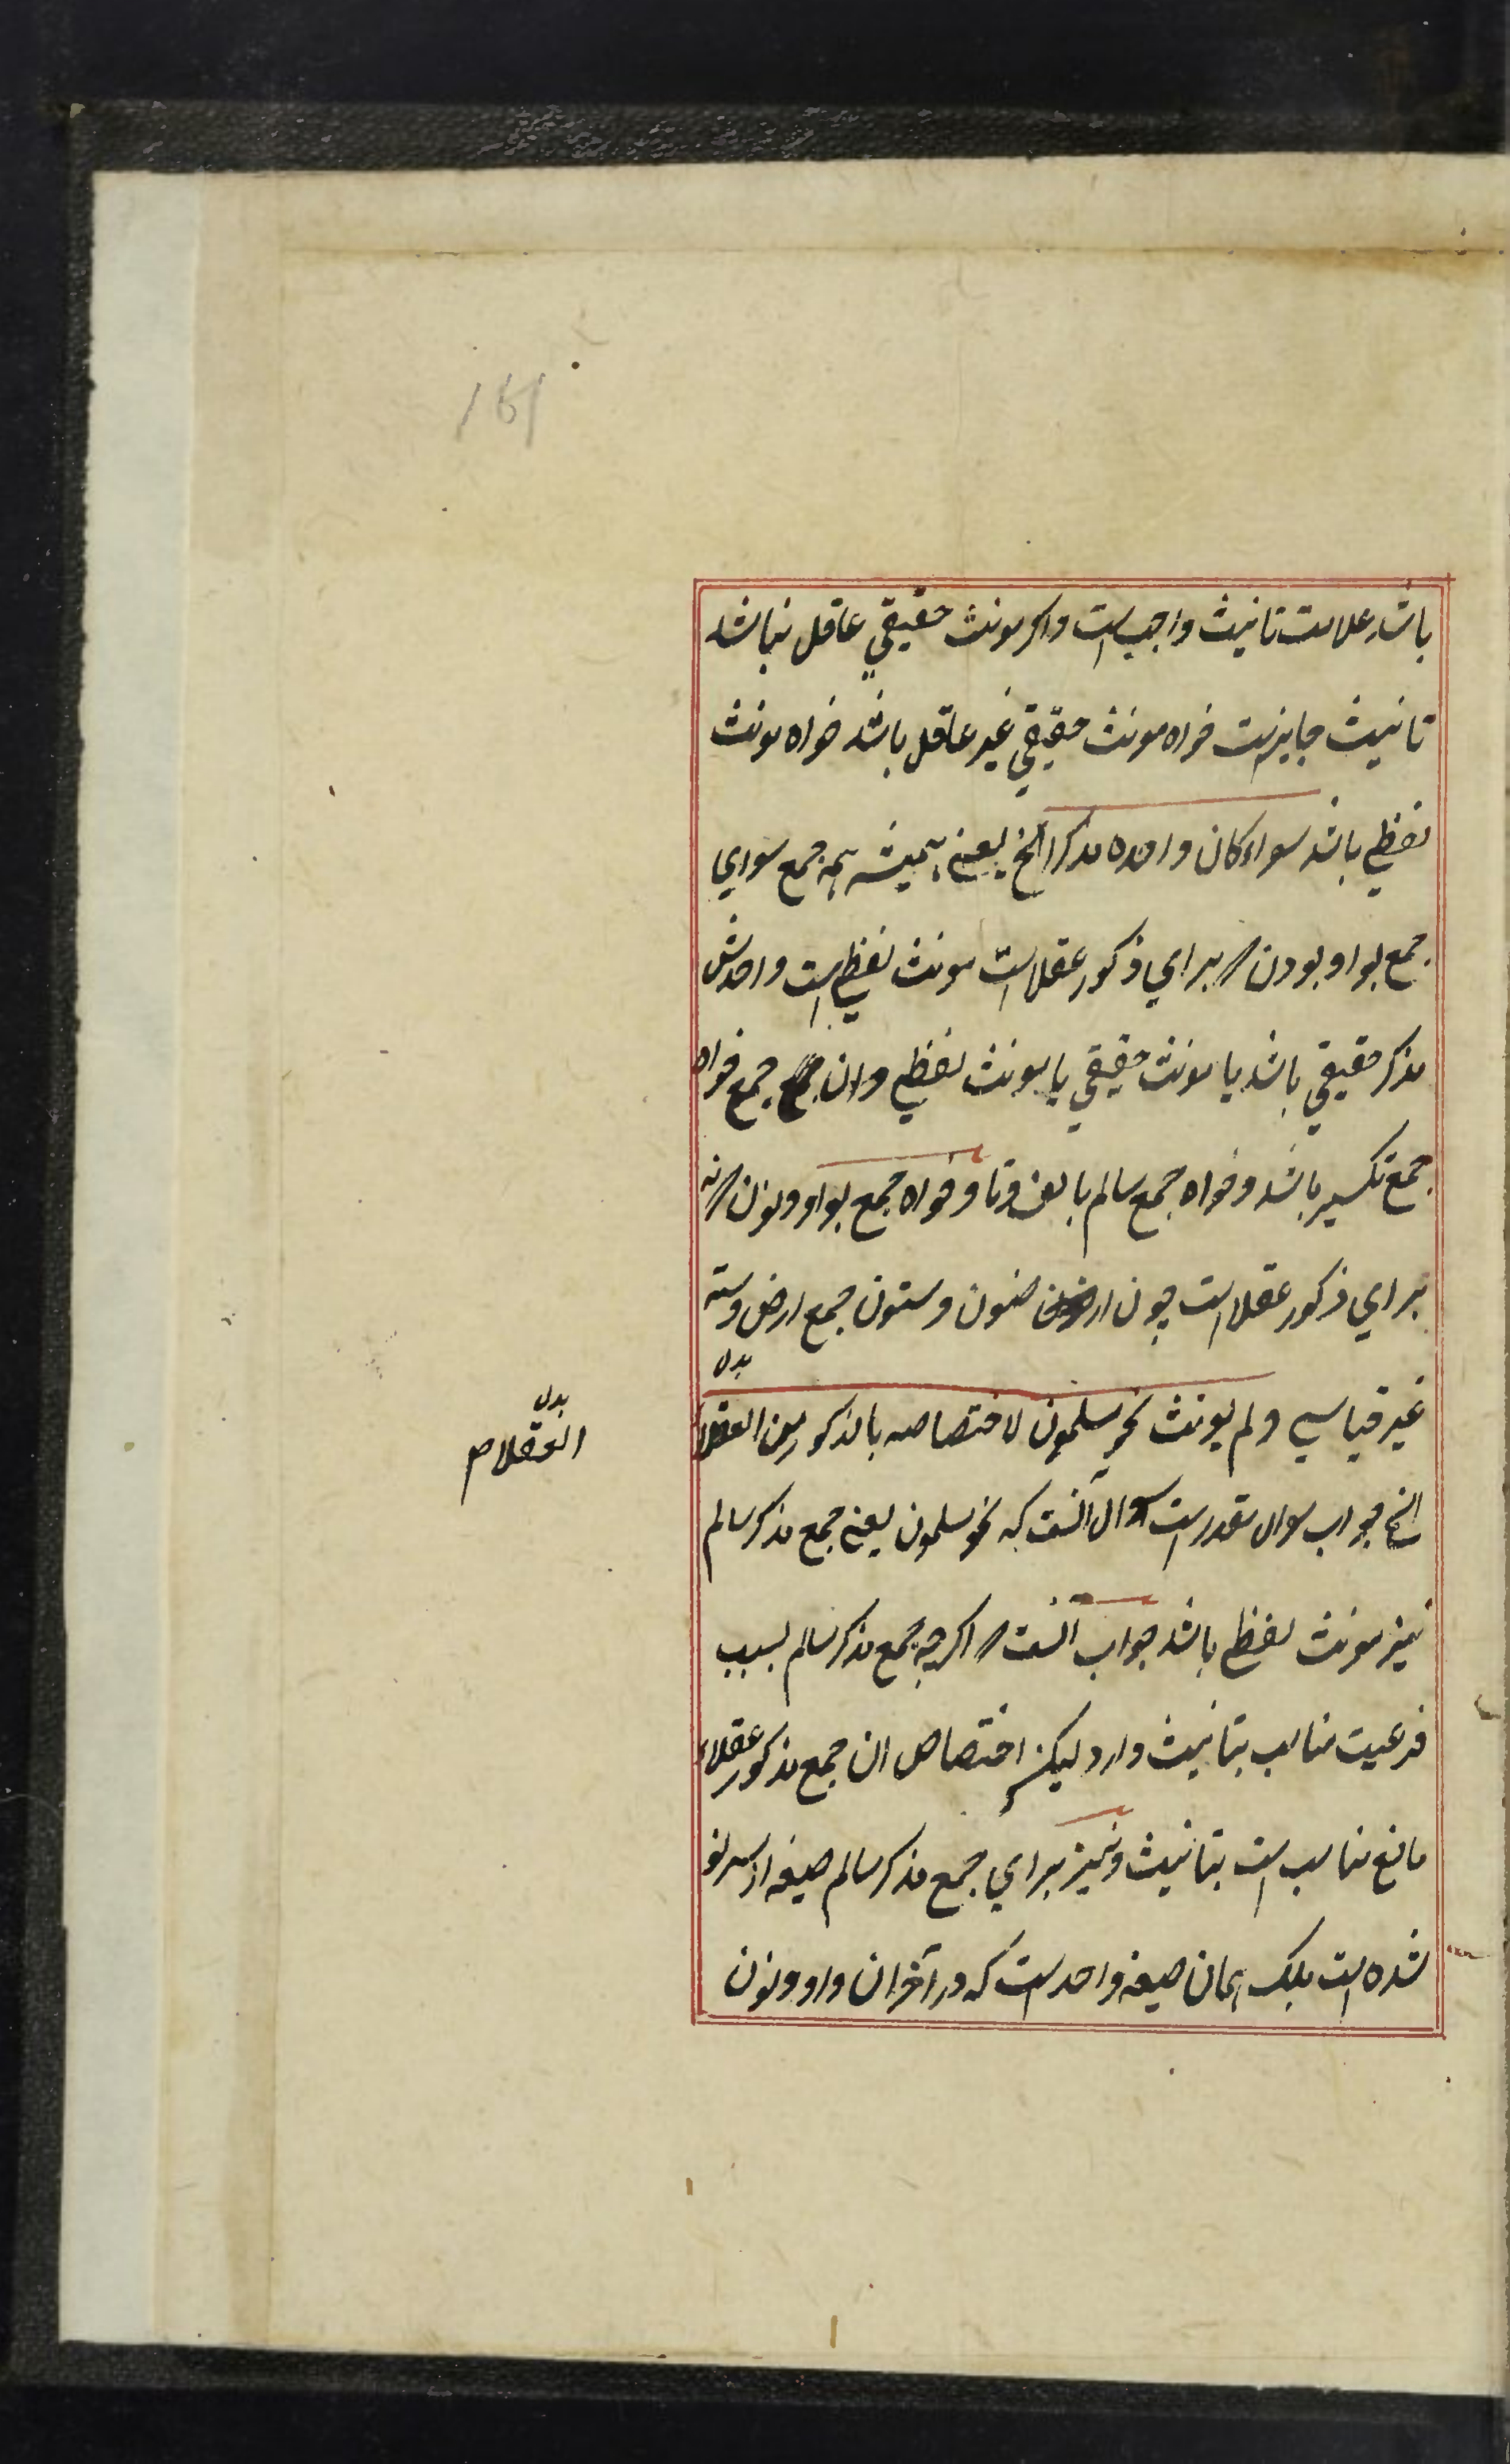 161
باشد علامت تانیث واجب است واکر مونث حقیقي عاقل نباشد
تانیث جایز است خواه مونث حقیقي غیر عاقل باشد خواه مونث
لفظي باشد سواء کان واحده مذکرا الخ یعنے همیشه همه جمع سواي
جمع بواو بودن براي ذکور عقلا است مونث لفظي است واحدش
مذکر حقیقي باشد یا مونث حقیقي یا مونث لفظي وان جمع خواه
جمع تکسیر باشد وخواه جمع سالم بالف وتا وخواه جمع بواو ونون نه
براي ذکور عقلا است چون ارضون وسنون جمع ارض وسنه
غیر قیاسي ولم یونث نحو مسلمون لاختصاصه بالذکور من العقلا
بدل
الخ جواب سوال مقدر است سوال آنست که نحو مسلمون یعنے جمع مذکر سالم
نیز مونث لفظے باشد جواب آنست اکرچه جمع مذکر سالم بسبب
فرعیت مناسب بتانیث دارد لیکن اختصاص ان جمع مذکور عقلاء
مانع مناسب است بتانیث ونیز براي جمع مذکر سالم صیغه از سر نو
نشده است بلکه همان صیغه واحد است که در آخر ان واو ونون
بدل
العقلاء م